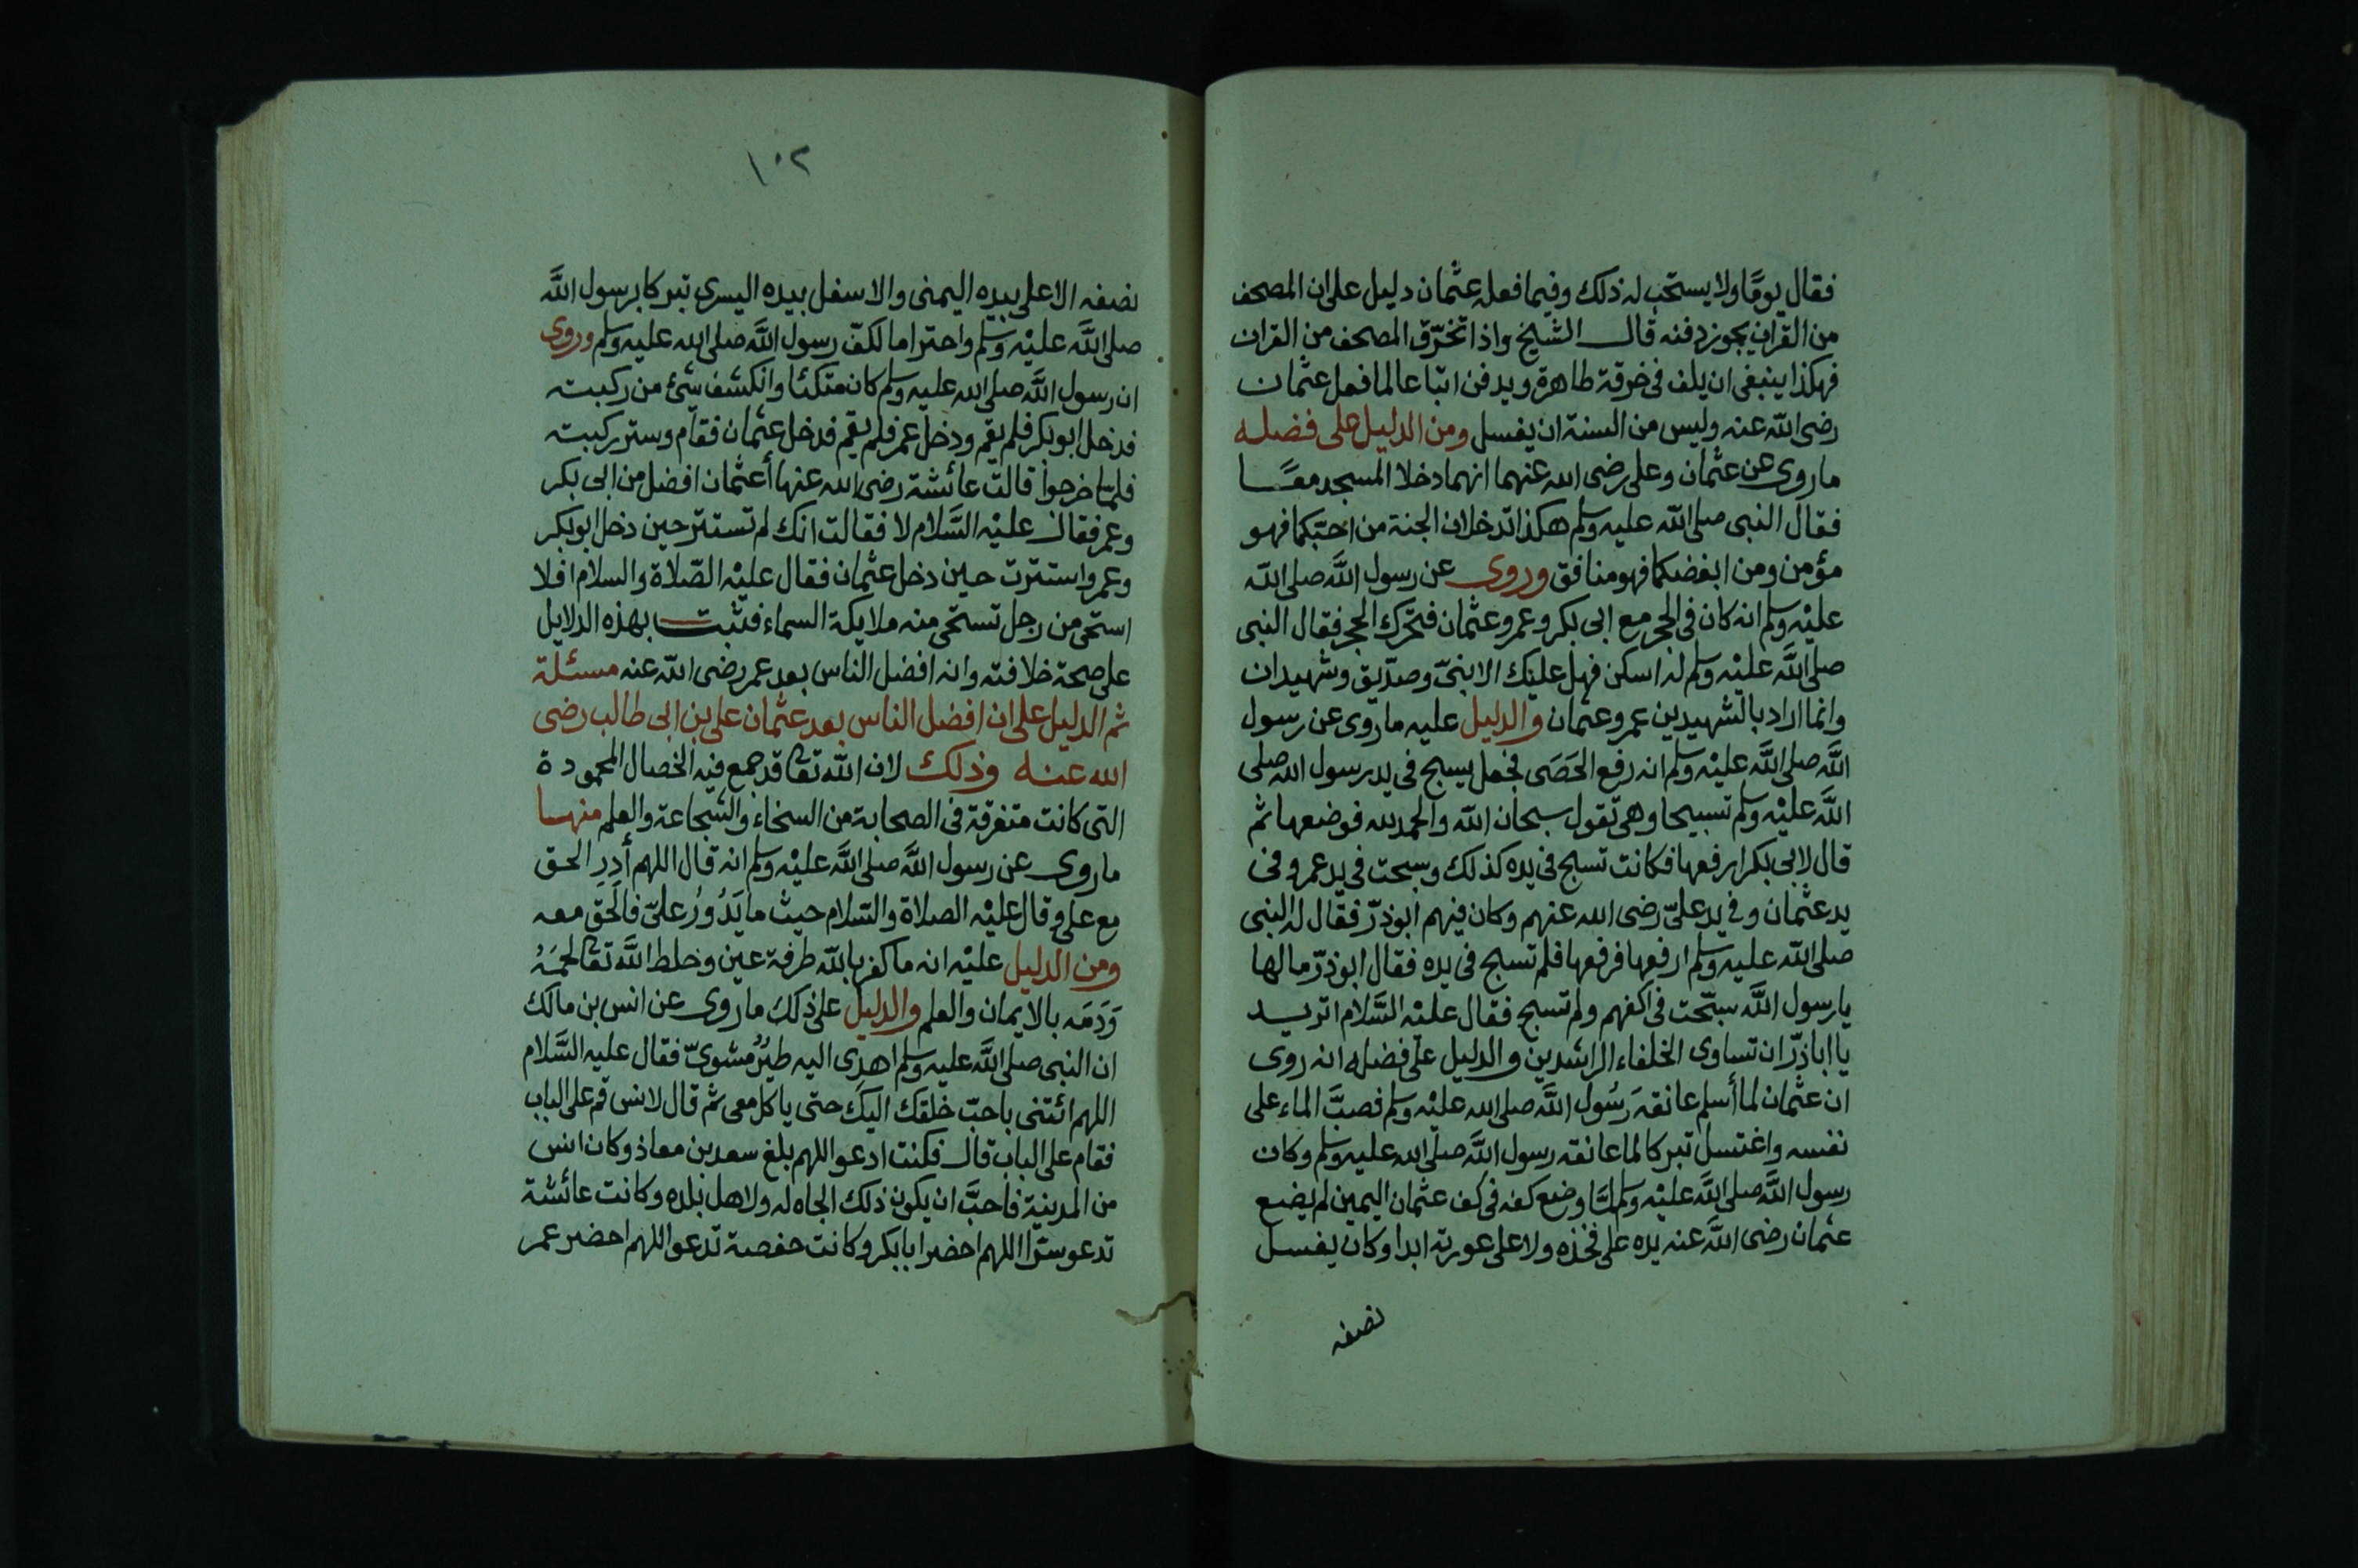 فقال يومًا ولا يستحب له ذلك وفيما فعله عثمان دليل على ان المصحف
من القران يجوز دفنه قال الشيخ واذا تخرّق المصحف من القران
فهكذا ينبغى ان يلف فى خرقة طاهرة ويدفن اتباعا لما فعل عثمان
رضى الله عنه وليس من السنة ان يغسل ومن الدليل على فضله
ما روى عن عثمان وعلى رضى الله عنهما انهما دخلا المسجد معًا
فقال النبى صلى الله عليه وسلم هكذا تدخلان الجنة من احبّكما فهو
مؤمن ومن ابغضكما فهو منافق وروى عن رسول الله صلى الله
عليه وسلم انه كان فى الحجر مع ابى بكر وعمر وعثمان فتحرك الحجر فقال النبى
صلى الله عليه وسلم له اسكن فهل عليك الا نبىّ وصدّيق وشهيدان
وانما اراد بالشهيدين عمر وعثمان والدليل عليه ما روى عن رسول
الله صلى الله عليه وسلم انه رفع الحَصَى فجعل يسبح فى يد رسول الله صلى
الله عليه وسلم تسبيحا وهى تقول سبحان الله والحمد لله فوضعها ثم
قال لابى بكر ارفعها فكانت تسبح فى يده كذلك وسبحت فى يد عمر وفى
يد عثمان وفى يد علىّ رضى الله عنهم وكان فيهم ابوذرّ فقال له النبى
صلى الله عليه وسلم ارفعها فرفعها فلم تسبح فى يده فقال ابوذرّ مالها
يا رسول الله سبّحت فى اكفهم ولم تسبح فقال عليه السَّلام اتريد
يا اباذرّ ان تساوى الخلفاء الراشدين والدليل على فضله انه روى
ان عثمان لما أسلم عانقه رَسُول الله صلى الله عليه وسلم فصبَّ الماء على
نفسه واغتسل تبركا لما عانقه رسول الله صلى الله عليه وسلم وكان
رسول الله صلى الله عليه وسلم لمَّا وضع كفه فى كف عثمان اليمين لم يضع
عثمان رضى الله عنه يده على فخذه ولا على عورته ابدا وكان يغسل
نصفه
١٠٢
نصفه الاعلى بيده اليمنى والاسفل بيده اليسرى تبركا برسول الله
صلى الله عليه وسلم واحتراما لكفّ رسول الله صلى الله عليه وسلم وروى
ان رسول الله صلى الله عليه وسلم كان متكئا وانكشف شئ من ركبته
فدخل ابوبكر فلم يقم ودخل عمر فلم يقم فدخل عثمان فقام وستر ركبته
فلمّا خرجوا قالت عائشة رضى الله عنها أعثمان افضل من ابى بكر
وعمر فقال عليه السَّلام لا فقالت انك لم تستتر حين دخل ابوبكر
وعمر واستترت حين دخل عثمان فقال عليه الصّلاة والسلام افلا
استحى من رجل تستحى منه ملايكة السماء فثبت بهذه الدلايل
على صحة خلافته وانه افضل الناس بعد عمر رضى الله عنه مسئلة
ثم الدليل على ان افضل الناس بعد عثمان على بن ابى طالب رضى
الله عنه وذلك لان الله تعا قد جمع فيه الخصال المحمودة
التى كانت متفرقة فى الصحابة من السخاء والشجاعة والعلم منها
ما روى عن رسول الله صلى الله عليه وسلم انه قال اللهم أَدِرِ الحق
مع على وقال عليه الصلاة والسّلام حيث ما يَدُورُ علىّ فالحَق معه
ومن الدليل عليه انه ما كفر بالله طرفة عين وخلط الله تعا لحمَهُ
وَدَمَه بالايمان والعلم والدليل على ذلك ما روى عن انس بن مالك
ان النبى صلى الله عليه وسلم اهدِى اليه طَيْرٌ مشوىّ فقال عليه السَّلام
اللهم ائتنى باحبّ خلقك اليك حتى ياكل معى ثم قال لانس قم على الباب
فقام على الباب قال فكنت ادعو اللهم بلغ سعد بن معاذ وكان انس
من المدينة فاحبَّ ان يكون ذلك الجاه له ولاهل بلده وكانت عائشة
تدعو سرّا اللهم احضر ابابكر وكانت حفصة تدعو اللهم احضر عمر